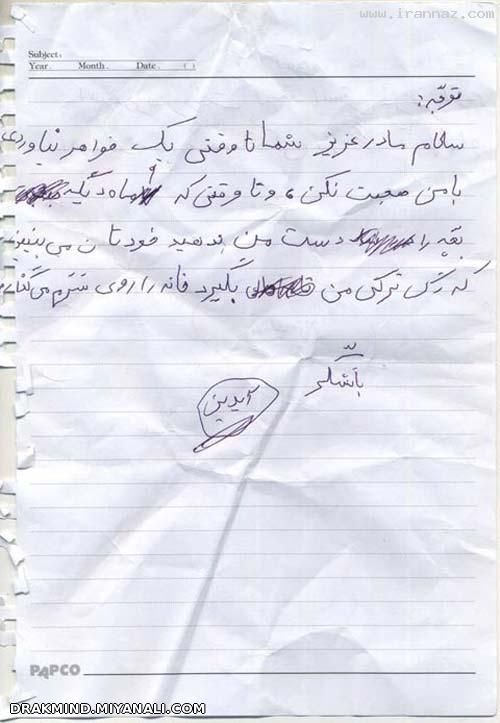 www.irannaz.com
Subject:
Year. Month. Date. ( )
توجّه:
سلام مادر عزیز شما تا وقتی یک خواهر نیاوردی
با من صحبت نکن، و تا وقتی که ۹ ماه دیگه
بچه را دست من بدهید خودتان می‌بینید
که رگ ترکی من بگیرد خانه را روی سَرَم می‌گذارم
باتشکر
آیدین
PAPCO
DRAKMIND.MIYANALI.COM